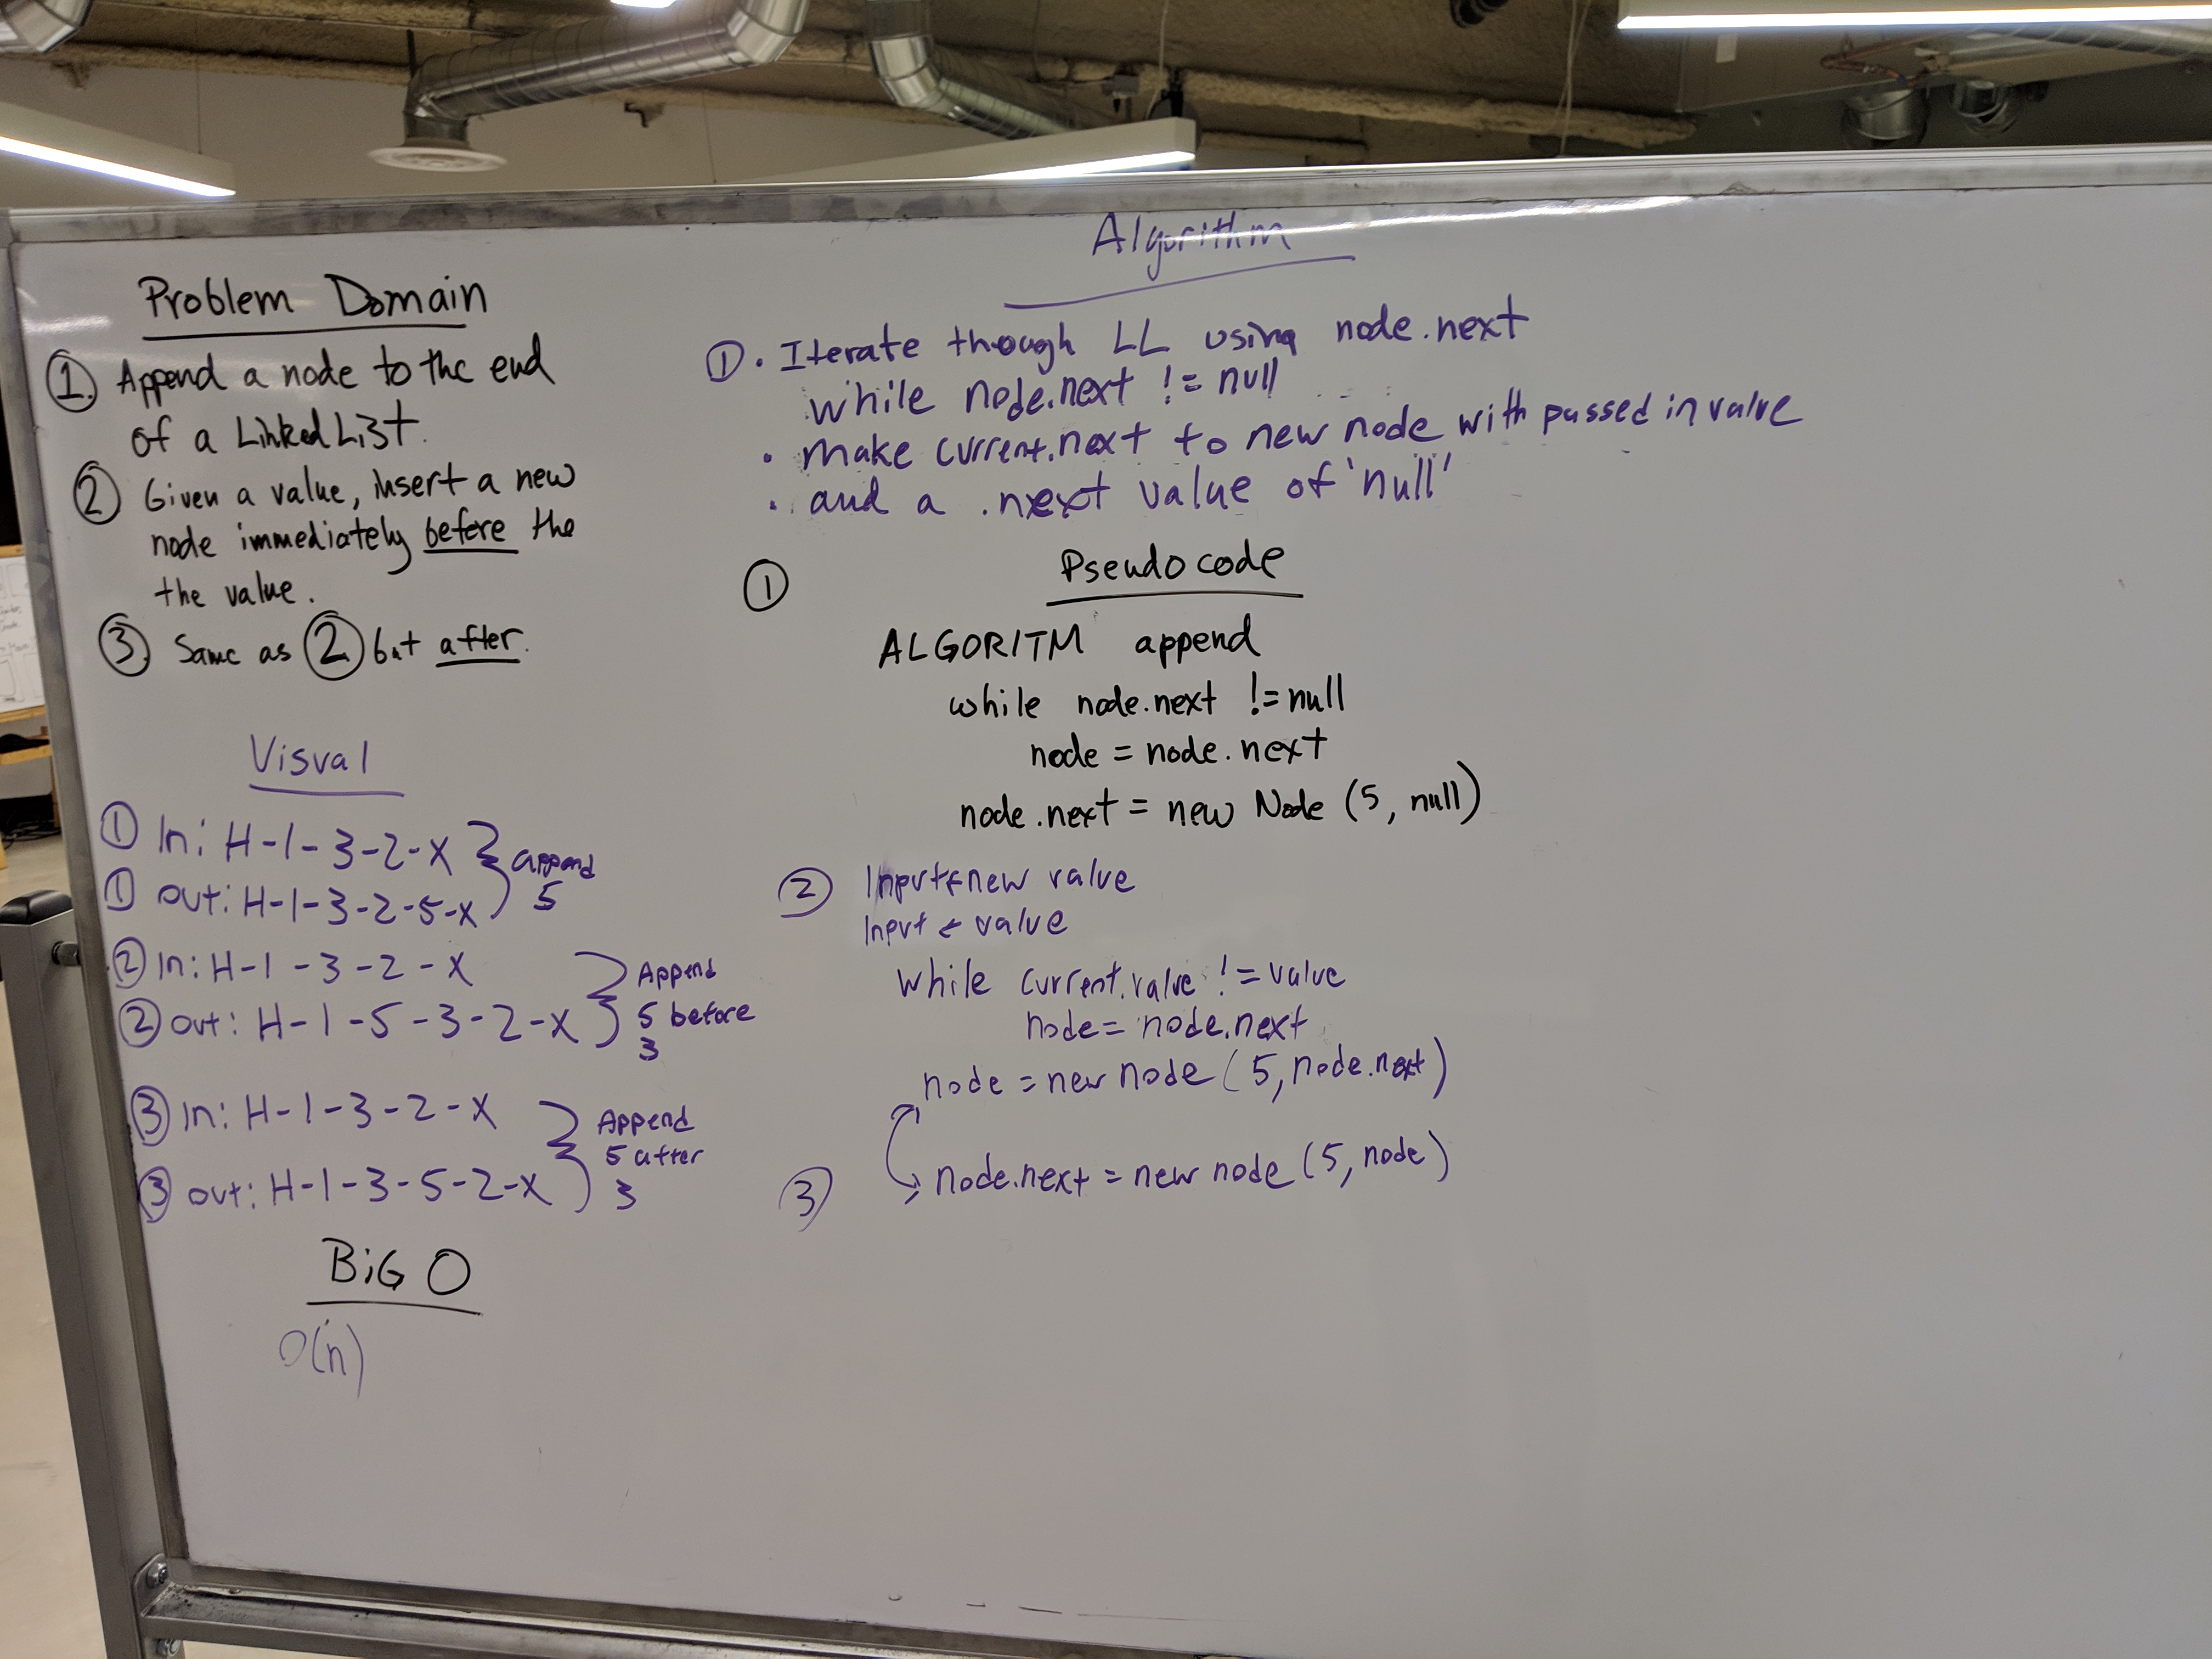 Problem Domain
1. Append a node to the end
of a Linked List.
2 Given a value, insert a new
node immediately before the
the value.
3. Same as 2 but after.
Visual
1 In: H-1-3-2-X } append
1 out: H-1-3-2-5-X 5
2 In: H-1-3-2-X } Append
2 out: H-1-5-3-2-X 5 before
3
3 In: H-1-3-2-X } Append
5 after
3 out: H-1-3-5-2-X 3
BiG O
O(n)
Algorithm
1 • Iterate though LL using node.next
while node.next != null
• make current.next to new node with passed in value
• and a .next value of 'null'
1 Pseudo code
ALGORITM append
while node.next != null
node = node.next
node.next = new Node (5, null)
2 Input ← new value
Input ← value
while current.value != value
node = node.next
node = new node (5, node.next)
3 node.next = new node (5, node)